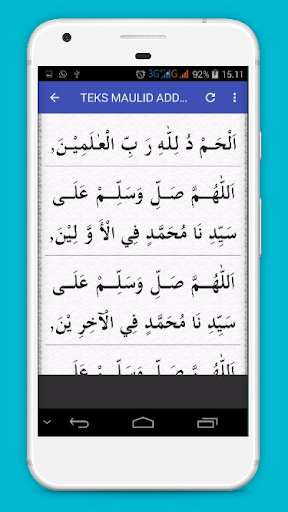 3G 4G 92% 15.11
TEKS MAULID ADD...
اَلْحَمْ دُ لِلّٰهِ رَ بِّ الْعٰلَمِيْنَ,
اَللّٰهُمَّ صَلِّ وَسَلِّمْ عَلَى
سَيِّدِ نَا مُحَمَّدٍ فِي الْأَ وَّ لِيْنَ,
اَللّٰهُمَّ صَلِّ وَسَلِّمْ عَلَى
سَيِّدِ نَا مُحَمَّدٍ فِي الْآخِرِ يْنَ,
اَللّٰهُمَّ صَلِّ وَسَلِّمْ عَلَى